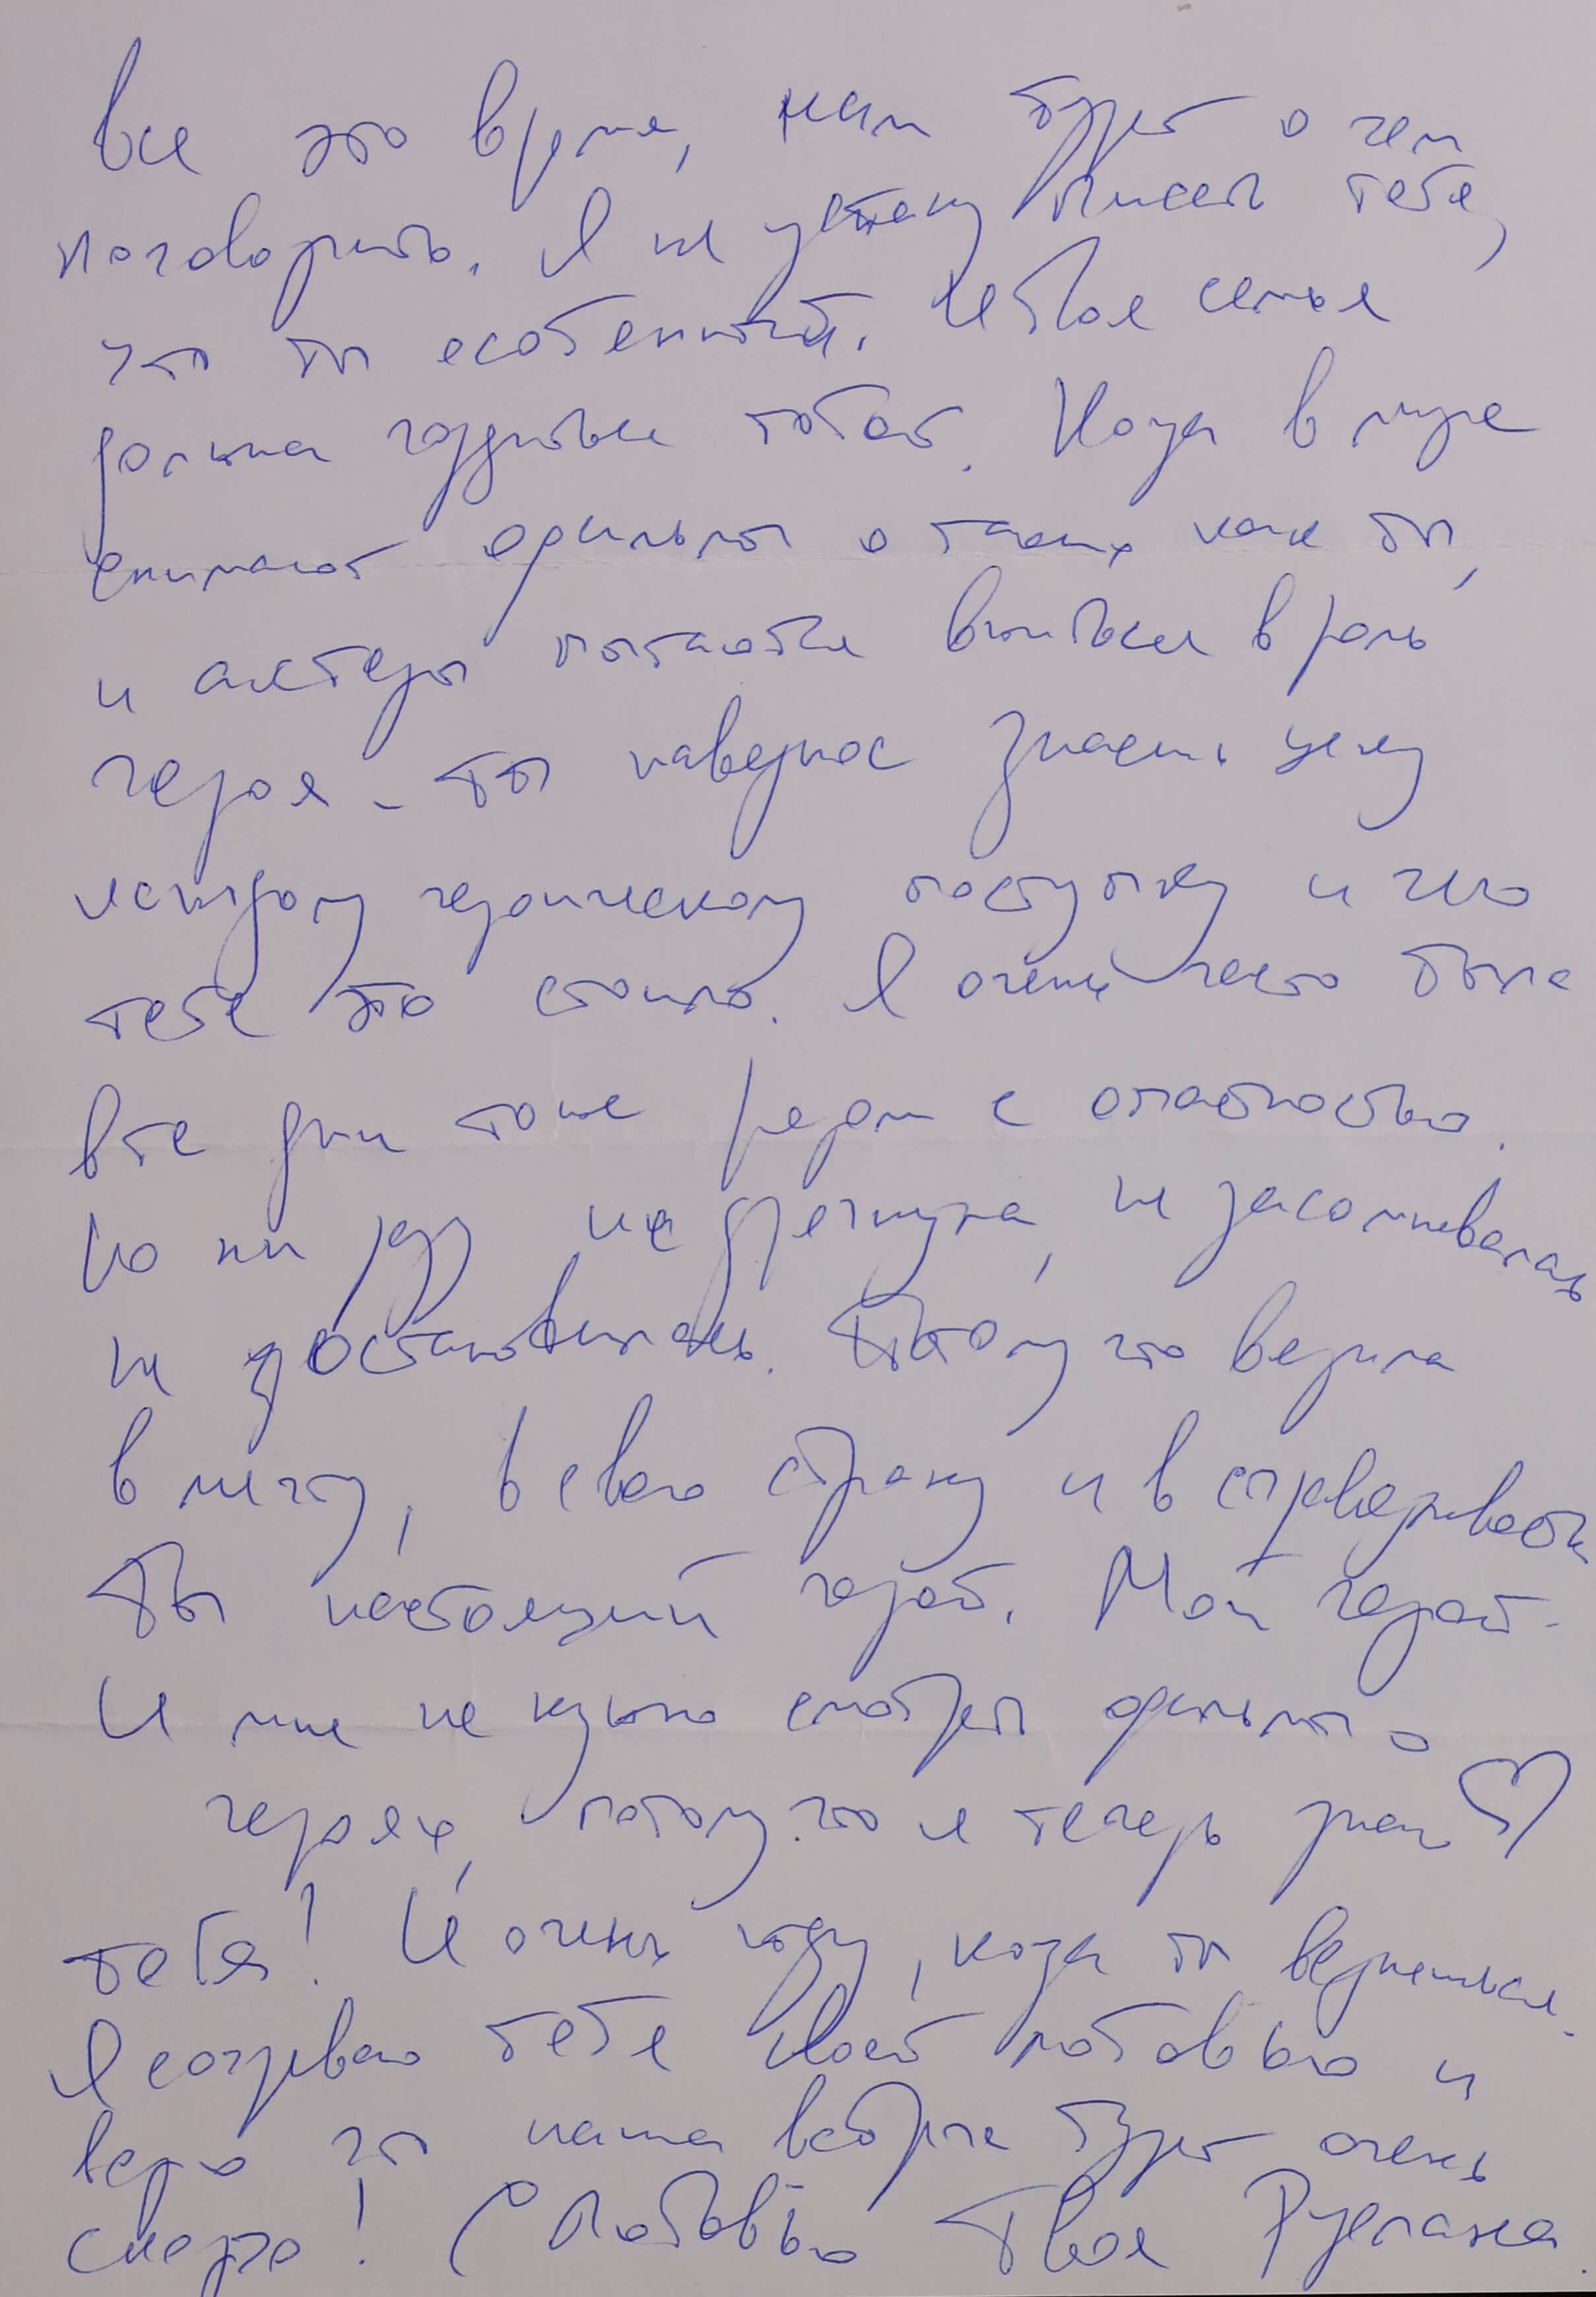 все это время, нам будет о чем
поговорить. Я не устану писать тебе,
что ты особенный. И твоя семья
должна гордиться тобой. Когда в мире
снимают фильмы о таких как ты,
и актеры пытаются вжиться в роль
героя - ты наверное знаешь цену
каждому героическому поступку и чего
тебе это стоило. Я очень часто была
в те дни тоже рядом с опасностью.
Но ни разу не дрогнула, не засомневалась
не остановилась. Потому что верила
в мечту, в свою страну и в справедливость
Ты настоящий герой. Мой герой.
И мне не нужно смотреть фильмы о
героях, потому что я теперь знаю ♡
тебя! И очень жду, когда ты вернешься.
Я согреваю тебя своей любовью и
верю что наша встреча будет очень
скоро! С Любовью Твоя Руслана